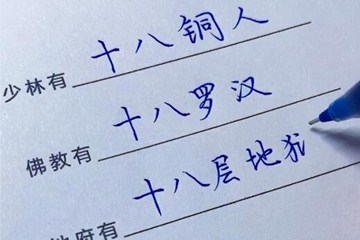 少林有十八铜人
佛教有十八罗汉
地府有十八层地狱